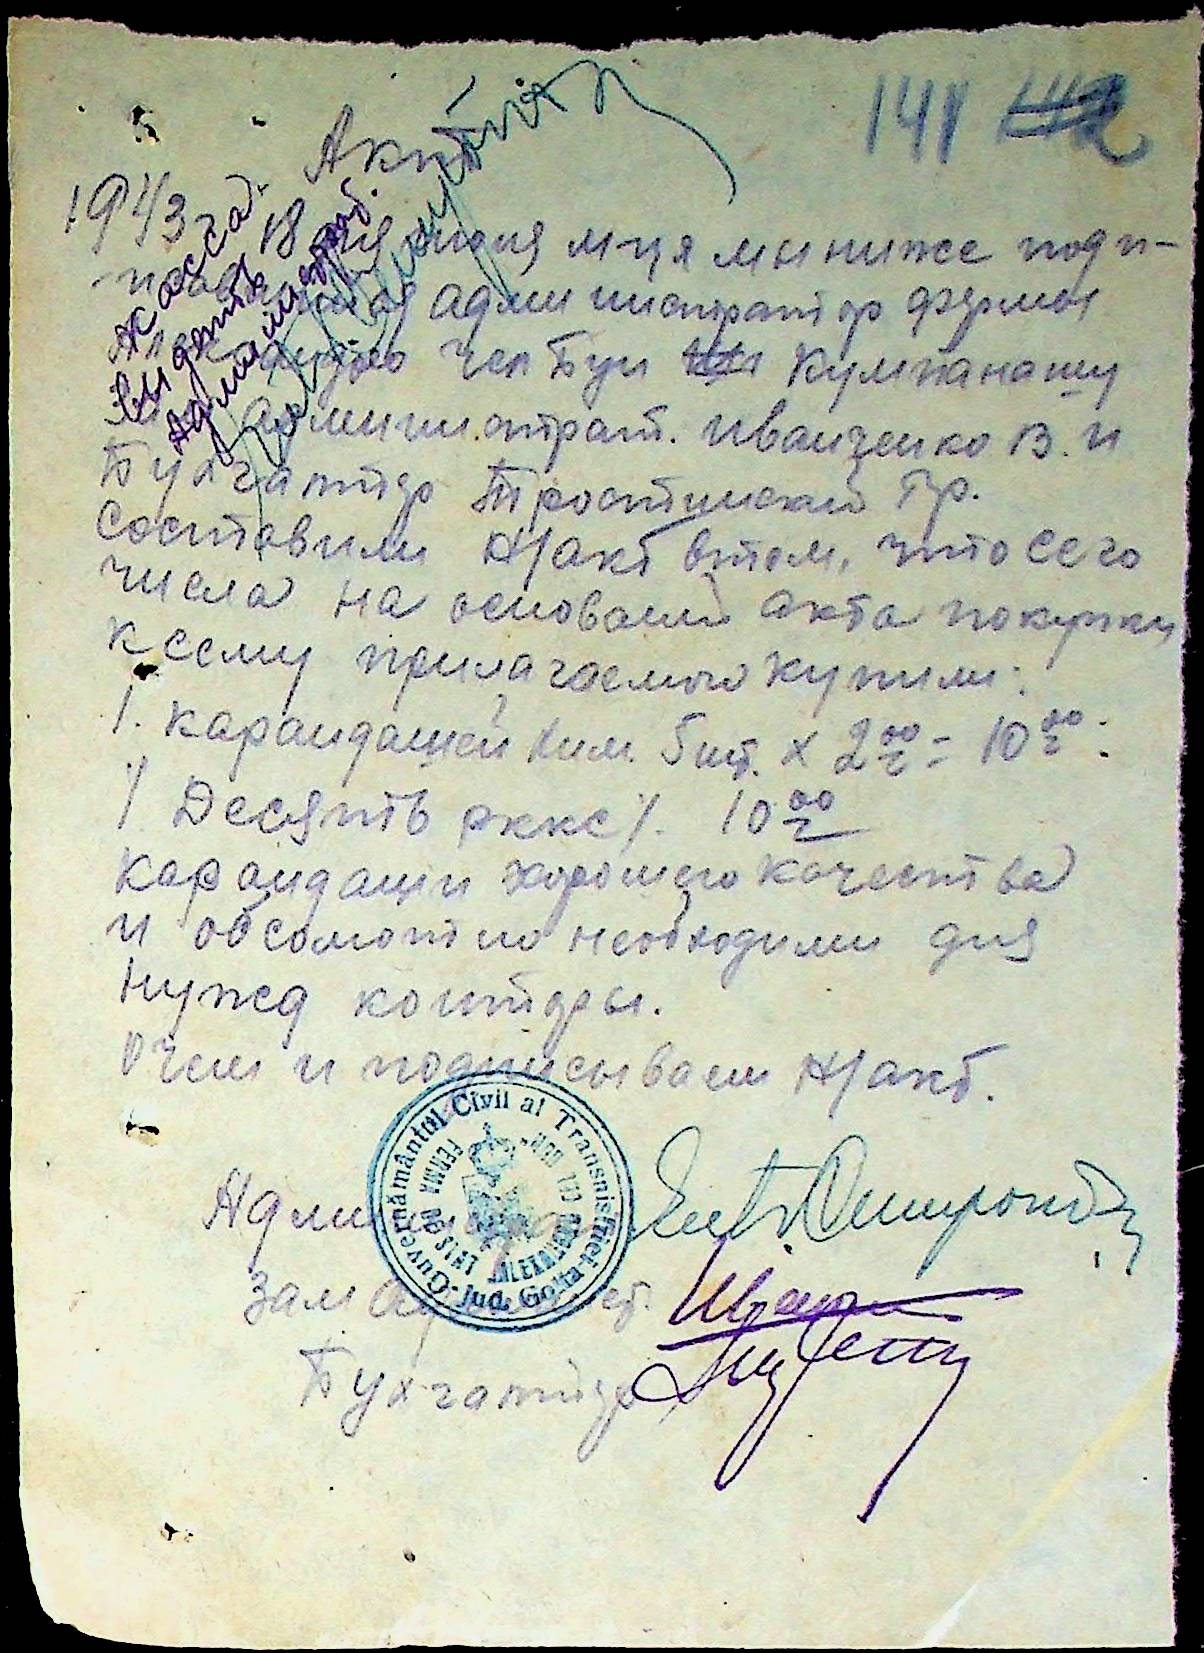 141
Актъ
1943 г. 18 дня июня м-ця мы ниже подп-
администратор фермы
Кумпанашу
администрат. Иванченко В. и
Бухгалтер Тростинский Гр.
составили н/акт втом, что сего
числа на основании акта покупки
к сему прилагаемого купили:
1. карандашей хим. 5 шт. х 2 00 = 10 00.
/. Десять рккс /. 10 00
карандаши хорошего качества
и обсолютно необходими для
нужд конторы.
Очем и подписываем н/акт.
Касса
выдать
Администрат.
Guvernământul Civil al Transnistriei
Jud. Golta
FERMA DE STAT
Зам
Бухгалтер